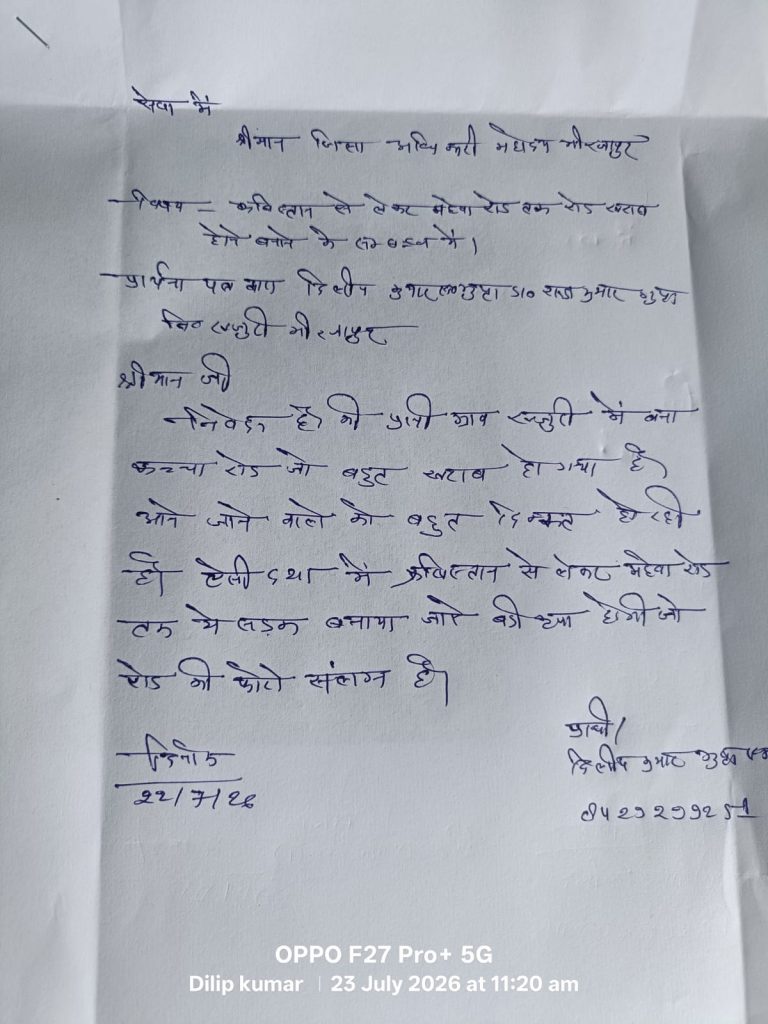 सेवा में
श्रीमान जिला अधिकारी महोदय मीरजापुर
विषय - कब्रिस्तान से लेकर महेवा रोड तक रोड खराब
होने बनाने के सम्बन्ध में।
प्रार्थना पत्र दिलीप कुमार राज कुमार
मीरजापुर
श्रीमान जी
निवेदन है की प्रार्थी ग्राम में बना
कच्चा रोड जो बहुत खराब हो गया है
आने जाने वाले को बहुत दिक्कत हो रही
है। ऐसी दशा में कब्रिस्तान से लेकर महेवा रोड
तक सड़क बनाया जाये बड़ी कृपा होगी जो
रोड की फोटो संलग्न है।
प्रार्थी
दिनांक
दिलीप कुमार
22/7/26
OPPO F27 Pro+ 5G
Dilip kumar | 23 July 2026 at 11:20 am